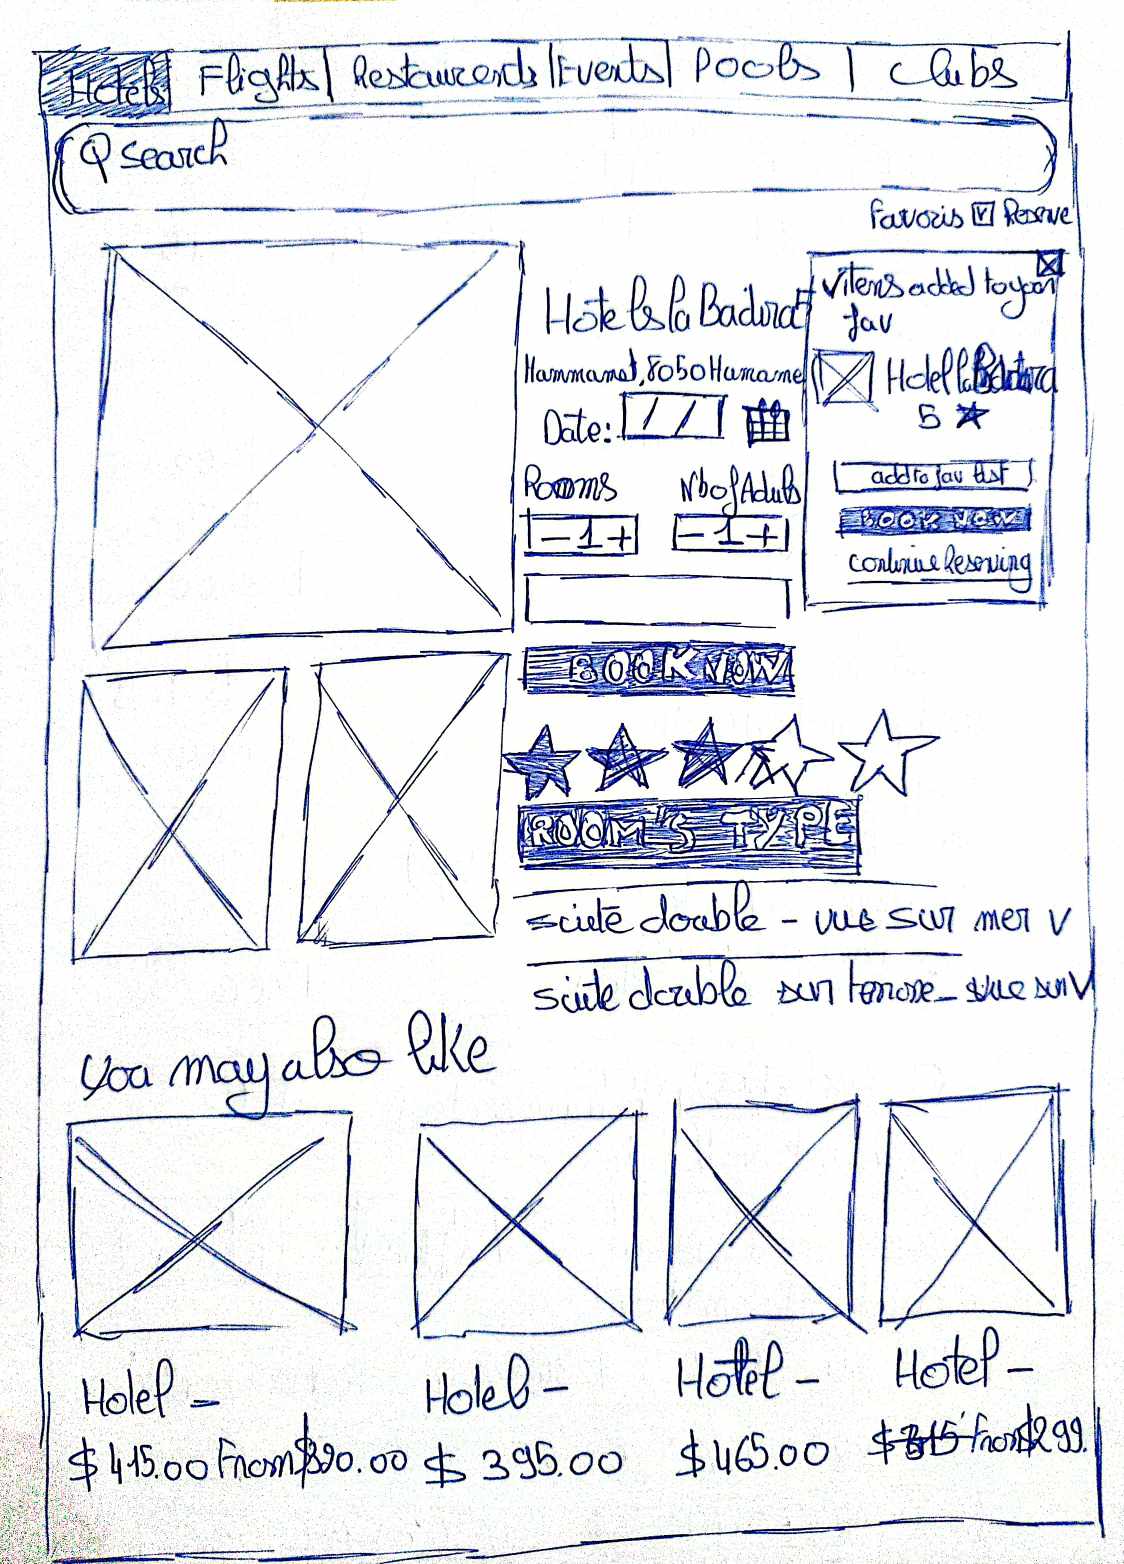 Hotels Flights Restaurants Events Pools Clubs
Search
Favoris Reserve
Hotel la Badira
Hammamet, 8050 Hamame
Date: / /
Rooms Nb of Adults
- 1 + - 1 +
BOOK NOW
ROOM'S TYPE
suite double - vue sur mer v
suite double sur terrasse - vue sur v
items added to your
fav
Hotel la Badira
5
add to fav list
BOOK NOW
continue Reserving
you may also like
Hotel - Hotel - Hotel - Hotel -
$415.00 From $390.00 $395.00 $465.00 $315 From $299.